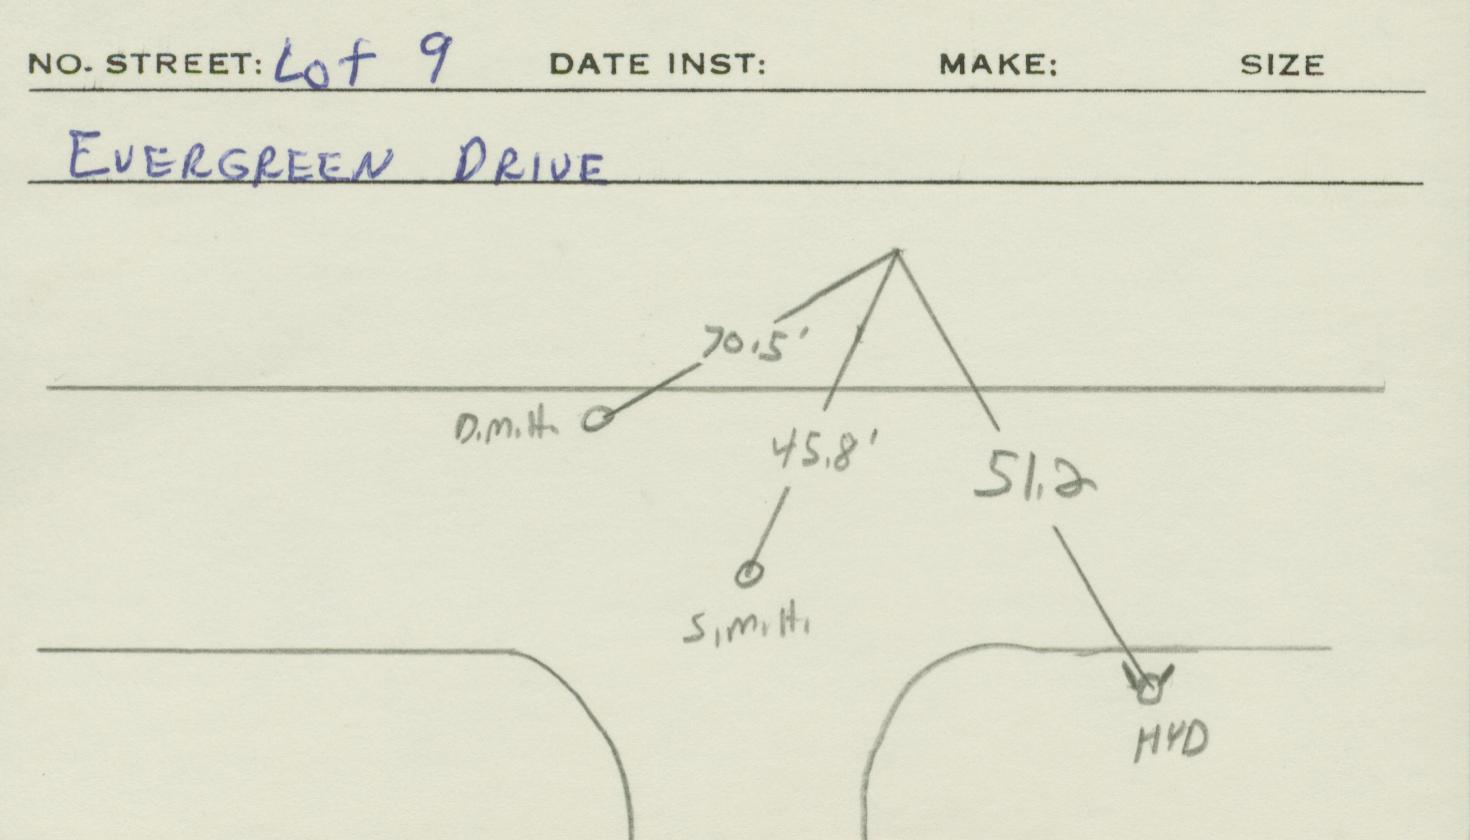 NO. STREET: Lot 9 DATE INST: MAKE: SIZE
EVERGREEN DRIVE
70.5'
D.M.H.
45.8'
51.2
S.M.H.
HYD